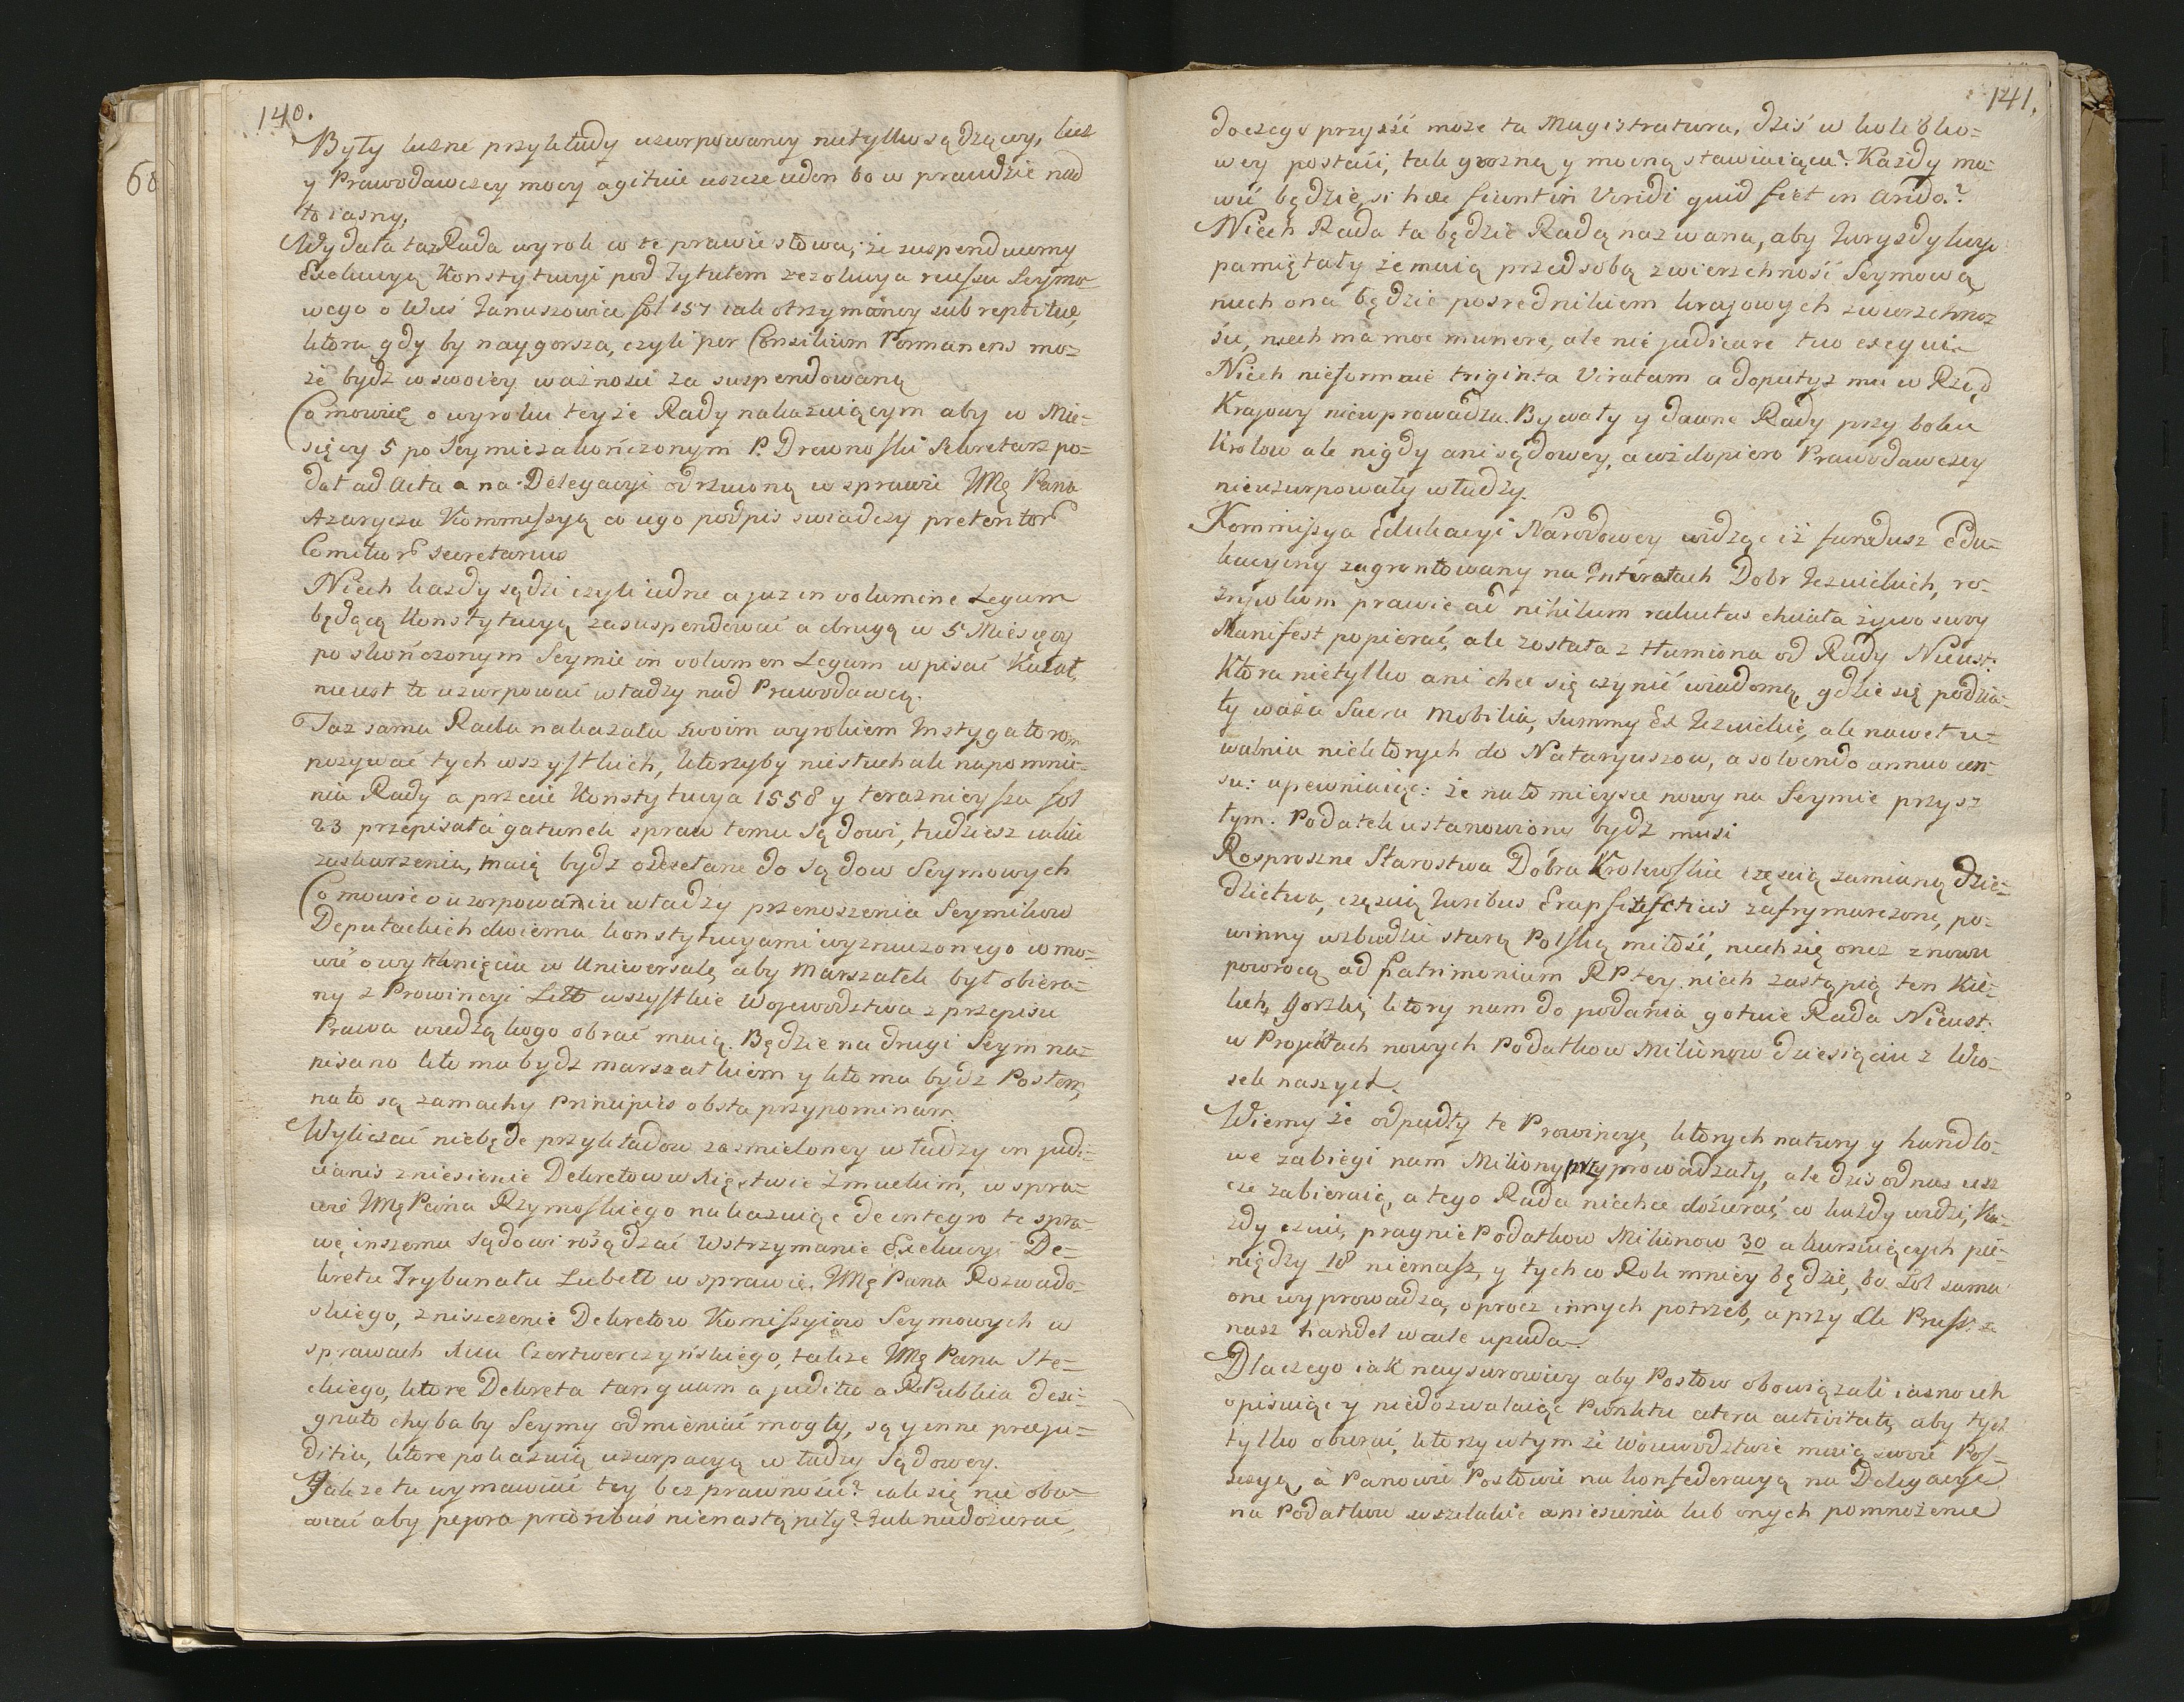 140.
Były liczne przykłady uzurpowaney nietylko sądzącey, lecz
y Prawodawczey mocy agituie ieszcze ieden bo w prawdzie nad
to iasny.
Wydała taż Rada wyrok w te prawie słowa; że suspenduiemy
Exekucyą Konstytucyi pod Tytułem rezolucya recessu Seymo
wego o Wieś Januszowice fol 157 iak otrzymaney sub reptitie,
ktora gdy by naygorsza, czyli per Consilium Permanens mo=
że bydz w swoiey ważności za suspendowaną
Co mowić o wyroku teyże Rady nakazuiącym aby w Mie=
sięcy 5 po Seymie zakończonym P. Drewnoski Sekretarz po=
dał ad Acta a na Delegacyi odrzuconą w sprawie JMę Pana
Azarycza Kommissyą co iego podpis swiadczy
Comitior secretarius
Niech każdy sądzi czyli iedne a iuż in volumine Legum
będącą Konstytucyą zasuspendować a drugą w 5 Miesięcy
po skończonym Seymie in volumen Legum wpisać Kazał,
nieiest to uzurpować władzy nad Prawodawcą.
Taż sama Rada nakazała swoim wyrokiem Instygatorom
pozywać tych wszystkich, ktorzyby niesłuchali napomnie=
nia Rady a przecie Konstytucya 1558 y teraznieysza fol
23 przepisała gatunek spraw temu Sądowi, tudziesz iakie
zaskarżenia, maią bydz odesełane do Sądow Seymowych
Co mowić o uzurpowaniu władzy przenoszenia Seymikow
Deputackich dwiema konstytucyami wyznaczonego co mo=
wić o wytknięciu w Uniwersale, aby Marszałek był obiera=
ny z Prowincyi Litt wszystkie Wojewodztwa z przepisu
Prawa wiedzą kogo obrać maią. Będzie na drugi Seym na=
pisano kto ma bydz marszałkiem y kto ma bydz Posłem,
na to są zamachy Principiis obsta przypominam
Wyliczać niebęde przykładow zasmieloney władzy in judi=
cianis zniesienie Dekretow w Xięstwie Zmuckim, w spra=
wie JMę Pana Rzymoskiego nakazuiąc de integro te spra=
wę inszemu Sądowi rosądzać Wstrzymanie Exekucyi De=
kretu Trybunału Lubell w sprawie JMę Pana Rozwado=
skiego, zniszczenie Dekretow Komissyiow Seymowych w
sprawach Xcia Czertwerczyńskiego, także JMę Pana Ste=
ckiego, ktore Dekreta tanquam a judicio a RPublica desi=
gnato chyba by Seymy odmieniać mogły, są y inne preju=
ditia, ktore pokazuią uzurpacyą władzy Sądowey.
Jakże tu wymawiać tey bez prawności? iak się nie oba=
wiać aby pejora prioribus nienastąpiły? Jak niedozierać,
141.
do czego przyiść może ta Magistratura, dziś w kolebko=
wey postaći, tak grozną y mocną stawiaiąca? Każdy mo=
wić będzie, si hæc fiunt in Viridi quid fiet in arido?
Niech Rada ta będzie Radą nazwana, aby Juryzdykcye
pamiętały że maią przed sobą zwierzchność Seymową,
niech ona będzie posrednikiem krajowych zwierzchnoś
ści, niech ma moc munere, ale nie judicare tuo exequi
Niech nieformuie triginta Viratum a doputyz mu w Rząd
Krajowy niewprowadza. Bywały y dawne Rady przy boku
Krolow ale nigdy ani sądowey, a coż dopiero Prawodawczey
nieuzurpowały władzy.
Kommissya Edukacyi Narodowey widząc iż fundusz Edu=
kacyiny zagruntowany na Intratach Dobr Jezuickich,
prawie ad nihilum chciała żywo swoy
Manifest popierać, ale została z tłumiona od Rady Nieust:
Ktora nietylko ani chce się czynić wiadomą, gdzie się podzia=
ły Sacra Mobilia, Summy Ex Jezuickie, ale nawet u=
walnia niektorych do Nataryuszow, a solvendo annuo cen=
su: upewniaiąc: że na to mieysce nowy na Seymie przysz
łym. Podatek ustanowiony bydz musi
Rosproszne Starostwa Dobra Krolewskie częscią zamianą dzie=
dzictwa, częscią Juribus zafrymarczone, po=
winny wzbudzic starą Polską miłość, niech się onez znowu
powrocą ad Patrimonium RPtey niech zastąpią ten Kie=
lich gorzki, ktory nam do podania gotuie Rada Nieust:
w Projektach nowych Podatkow Milionow dziesięciu z Wio=
sek naszych.
Wiemy że odpadły te Prowincye, ktorych natury y handlo=
we zabiegi nam Miliony przyprowadzały, ale dzis od nas iesz
cze zabieraią, a tego Rada niechce dozierać, co każdy widzi, Ka=
żdy czuie, pragnie Podatkow Milionow 30 a kursuiących pie=
niędzy 18 niemasz, y tych co Rok mniey będzie, bo Sol sama
one wyprowadza, oprocz innych potrzeb, a przy Cle Prusk: 
nasz handel wcale upada.
Dlaczego iak naysurowiey aby Posłow obowiązali iasno ich
opisuiąc y niedozwalaiąc Punktu cetera activitati, aby tych
tylko obierać, ktorzy w tym że Woiewodztwie maią swoie Pos=
sesyę, a Panowie Posłowie na konfederacyą na Delegacye
na Podatkow wszelakie wniesienia lub onych pomnożenie